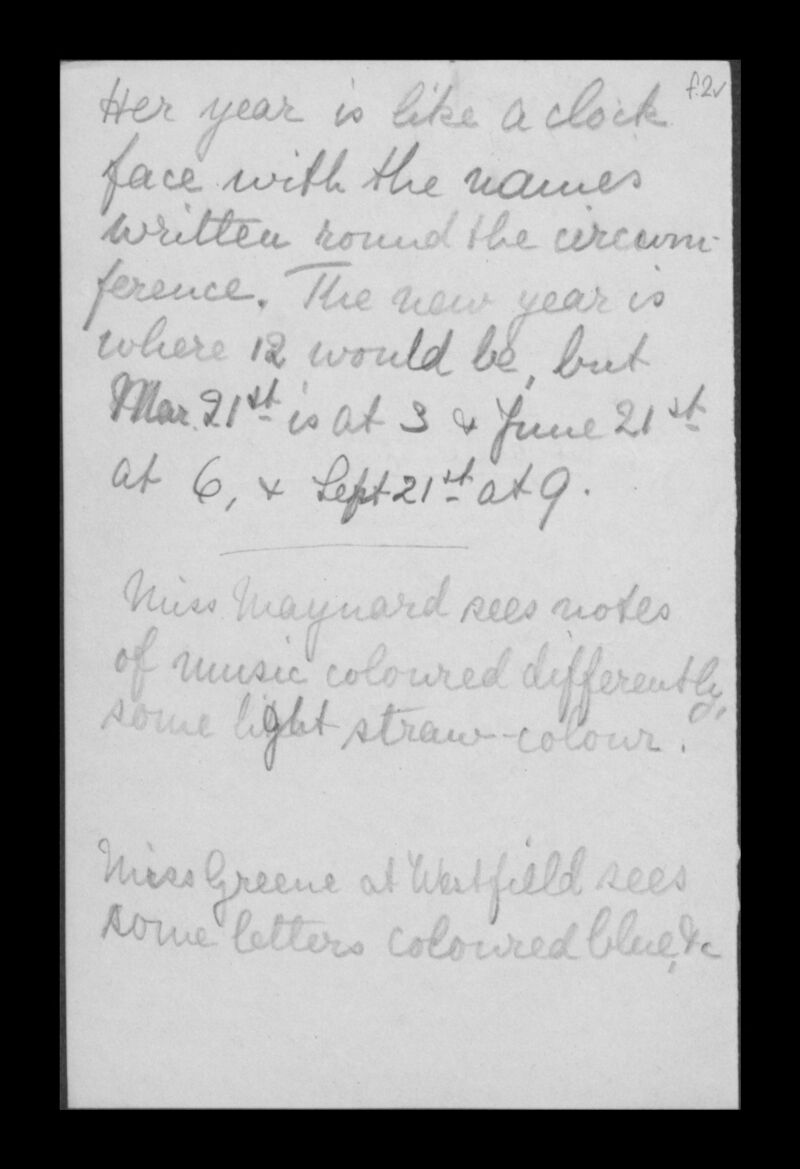 f.2v
Her year is like a clock
face with the names
written round the circum-
ference. The new year is
where 12 would be, but
Mar. 21st is at 3 & June 21st
at 6, & Sept 21st at 9.
Miss Maynard sees notes
of music coloured differently,
some light straw-colour.
Miss Greene at Westfield sees
some letters coloured blue, &c